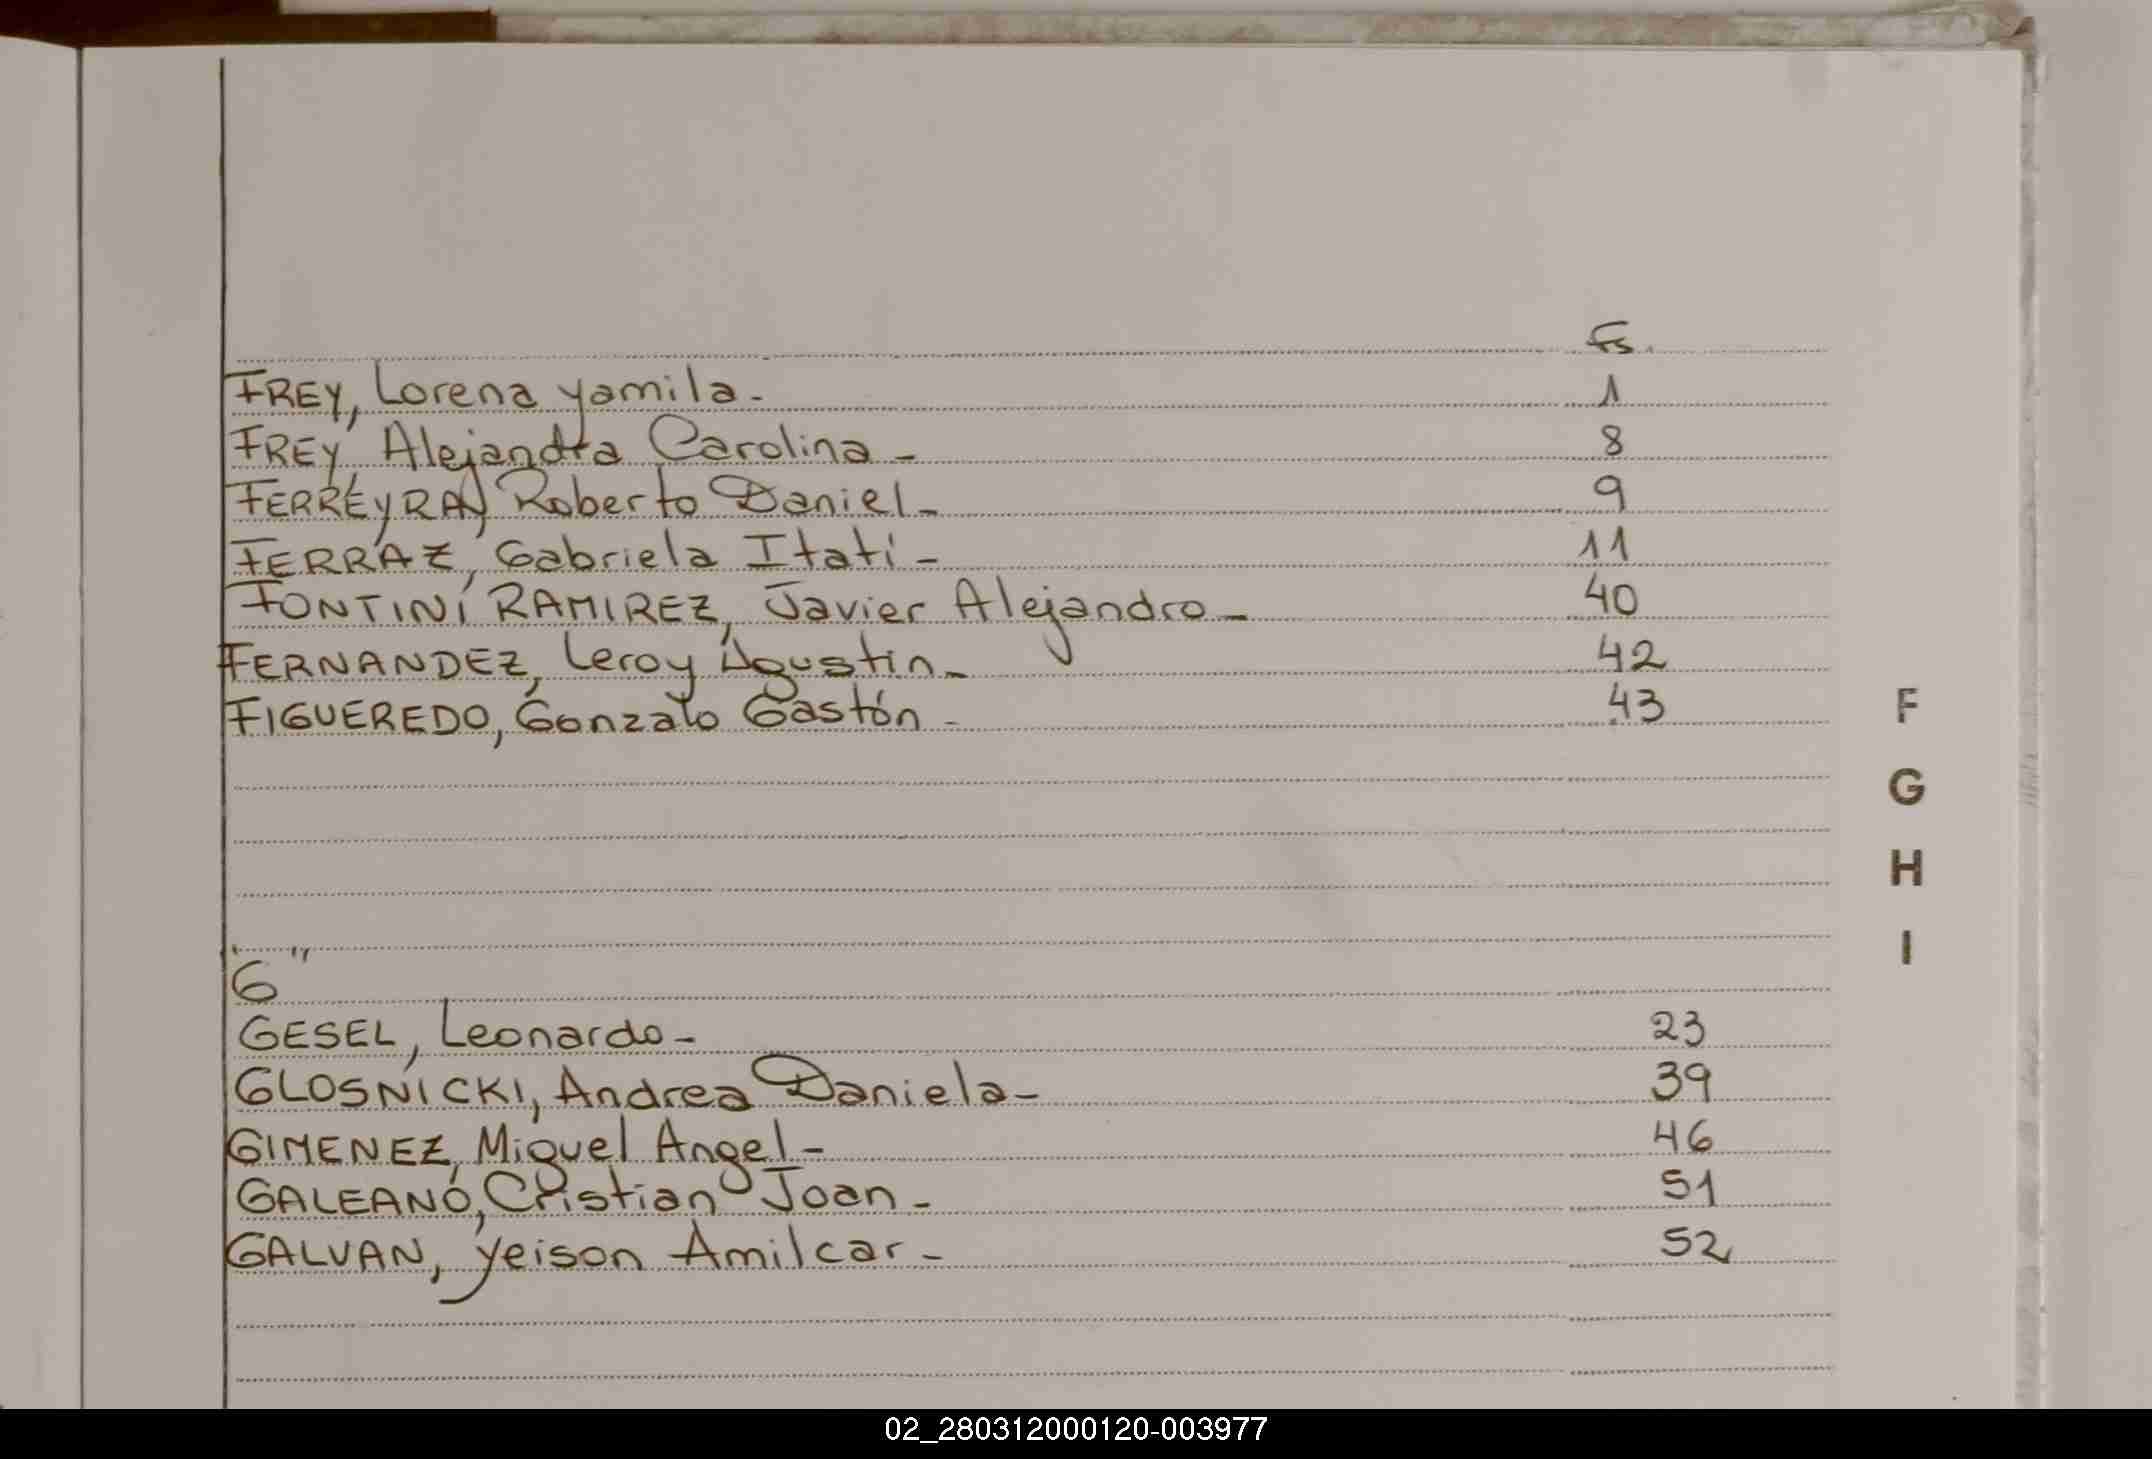 Fs.
FREY, Lorena Yamila- 1
FREY, Alejandra Carolina- 8
FERREYRA, Roberto Daniel- 9
FERRAZ, Gabriela Itatí- 11
FONTINI RAMIREZ, Javier Alejandro- 40
FERNANDEZ, Leroy Agustin- 42
FIGUEREDO, Gonzalo Gastón- 43
F
G
H
I
"G"
GESEL, Leonardo- 23
GLOSNICKI, Andrea Daniela- 39
GIMENEZ, Miguel Angel- 46
GALEANO, Cristian Joan- 51
GALVAN, Yeison Amilcar- 52
02_280312000120-003977